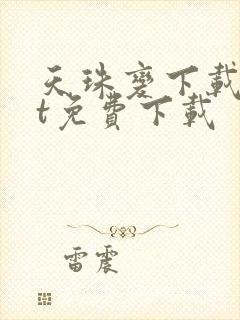 天珠變下載
t免費下載
雷震